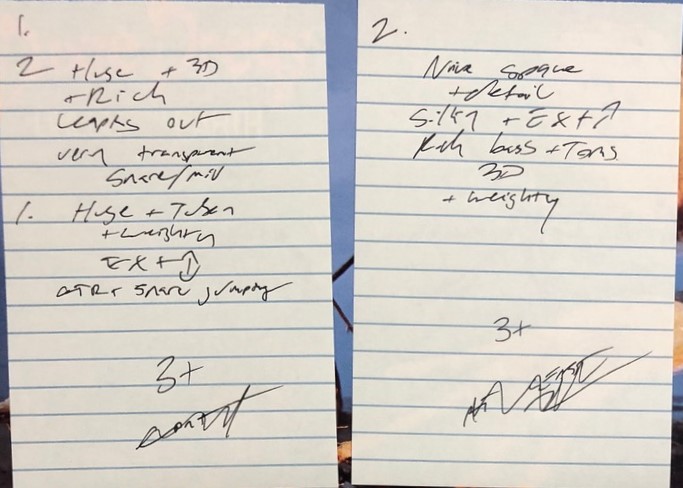 1.
2 Huge + 3D
+ Rich
Leaps out
very transparent
Snare/mid
1. Huge +
+ weighty
EXT ↕
GTR + Snare jumping
3+
2.
Nice space
+ detail
Silky + EXT ↑
Rich bass + Toms
3D
+ weighty
3+